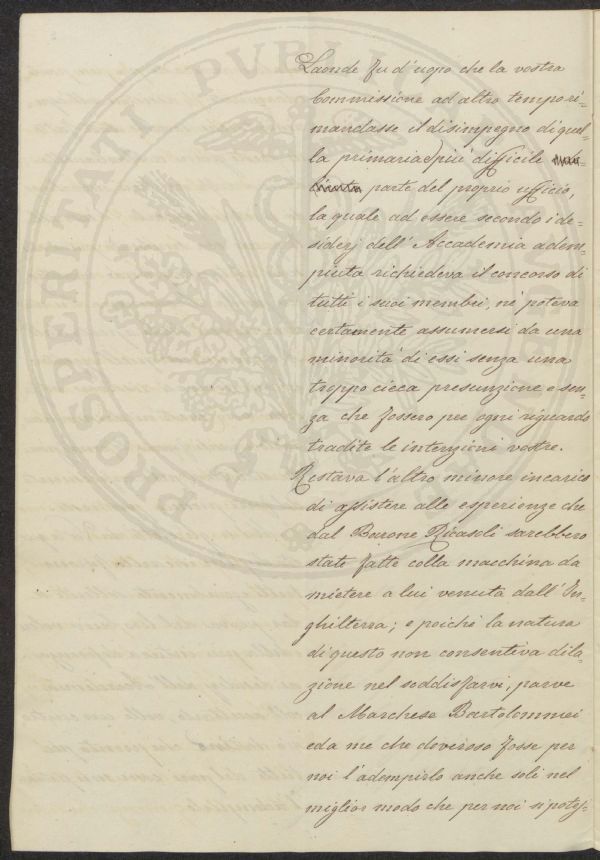 Laonde fu d'uopo che la vostra
Commissione ad altro tempo ri=
mandasse il disimpegno di quel=
la primaria e più difficile
parte del proprio ufficio,
la quale ad essere secondo i de=
siderj dell'Accademia adem=
piuta richiedeva il concorso di
tutti i suoi membri, nè poteva
certamente assumersi da una
minorità di essi senza una
troppo cieca presunzione e sen=
za che fossero per ogni riguardo
tradite le intenzioni vostre.
Restava l'altro minore incarico
di assistere alle esperienze che
dal Barone Ricasoli sarebbero
state fatte colla macchina da
mietere a lui venuta dall'In=
ghilterra; e poichè la natura
di questo non consentiva dila=
zione nel soddisfarvi, parve
al Marchese Bartolommei
ed a me che doveroso fosse per
noi l'adempirlo anche soli nel
miglior modo che per noi si potes=
PROSPERITATI PVBLICAE